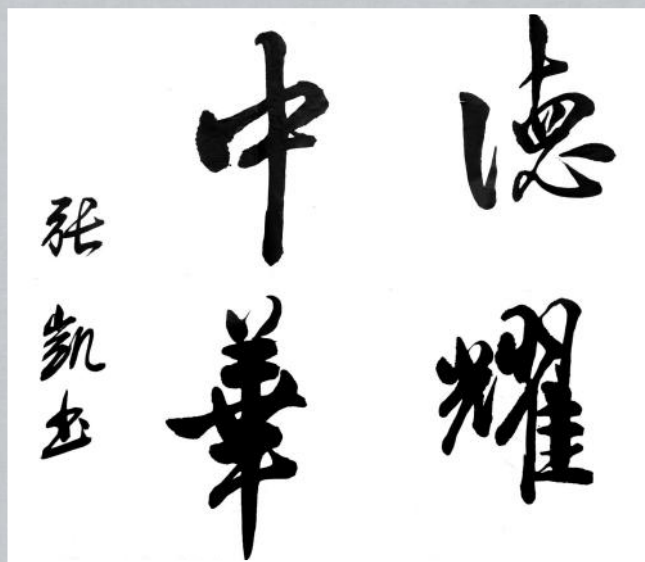 德耀
中華
张凯书